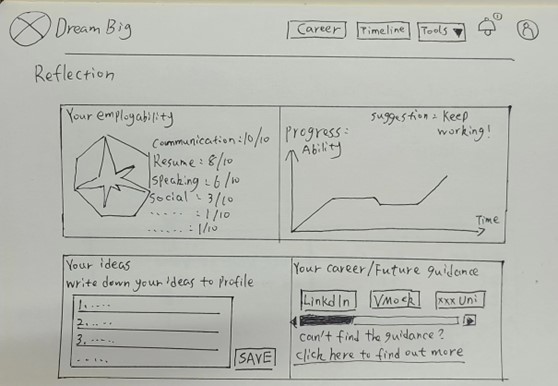 Dream Big
Career
Timeline
Tools ▼
1
Reflection
Your employability
Communication : 10/10
Resume : 8/10
Speaking : 6/10
Social : 3/10
...... : 1/10
...... : 1/10
Progress :
suggestion : Keep
working!
Ability
Time
Your ideas
write down your ideas to profile
1. .....
2. .....
3. .....
.....
SAVE
Your career/Future guidance
LinkdIn
VMock
xxx Uni
can't find the guidance?
click here to find out more